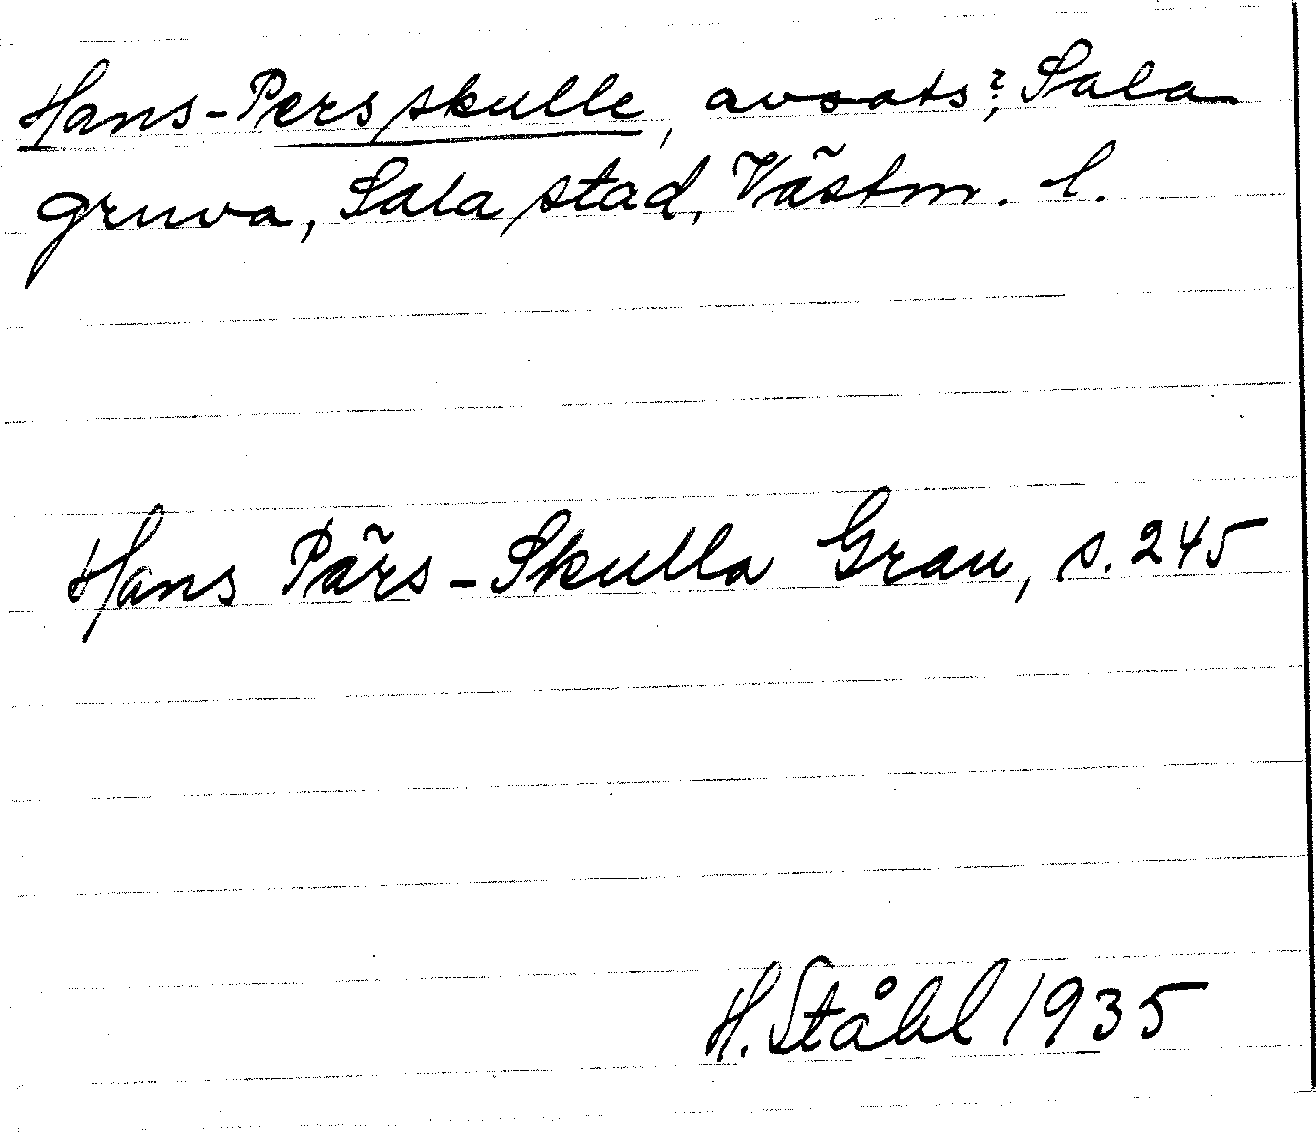 Hans-Persskulle, avsats?, Sala
gruva, Sala stad, Västm. l.
Hans Pärs-Skulla Grau, s. 245
H. Ståhl 1935